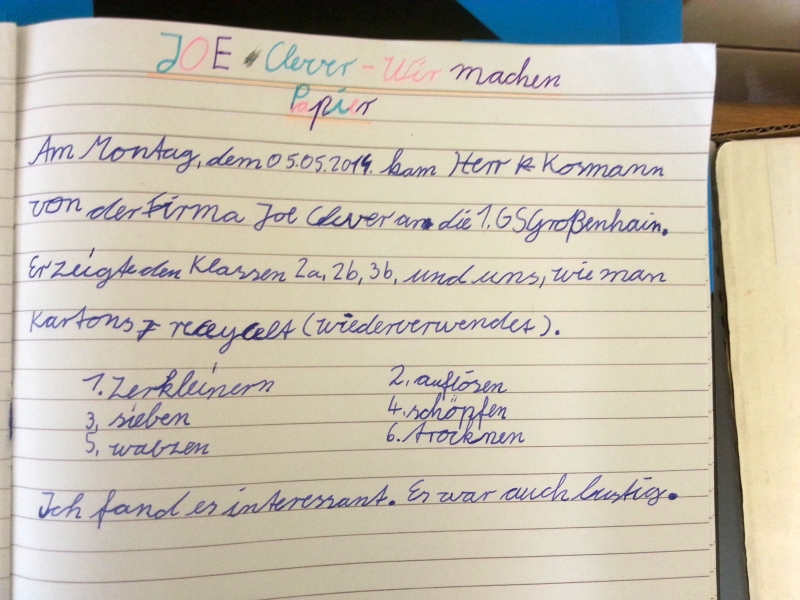 JOE Clever - Wir machen
Papier
Am Montag, dem 05.05.2014. kam Herr Kosmann
von der Firma Joe Clever an die 1. GS Großenhain.
Er zeigte den Klassen 2a, 2b, 3b, und uns, wie man
Kartons recycelt (wiederverwendet).
1. Zerkleinern 2. auflösen
3. sieben 4. schöpfen
5. walzen 6. trocknen
Ich fand es interessant. Es war auch lustig.